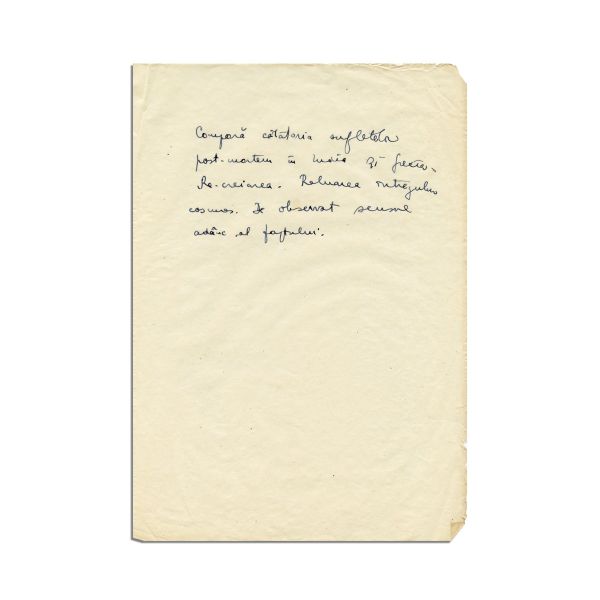 Compară călătoria sufletelor
post-mortem în India și Grecia.
Re-creiarea. Reluarea întregului
cosmos. De observat sensul
adânc al faptului.